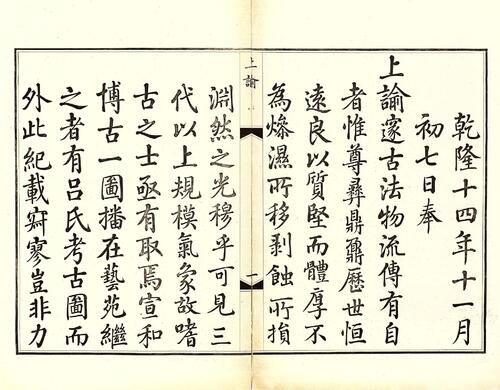 乾隆十四年十一月
初七日奉
上諭邃古法物流傳有自
者惟尊彝鼎鼐歷世恒
遠良以質堅而體厚不
為燥濕所移剥蝕所損
上諭
一
淵然之光穆乎可見三
代以上規模氣象故嗜
古之士亟有取焉宣和
博古一圖播在藝苑繼
之者有吕氏考古圖而
外此紀載寂寥豈非力